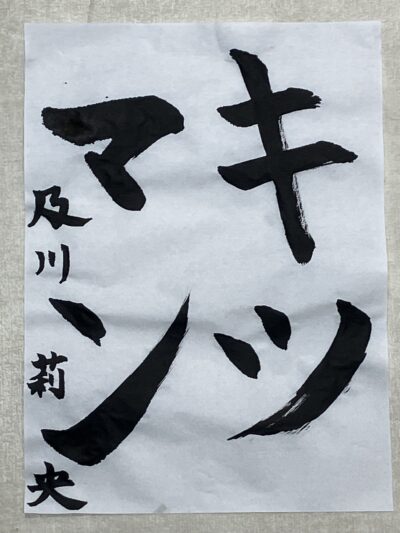 キツ
マン
及川莉央